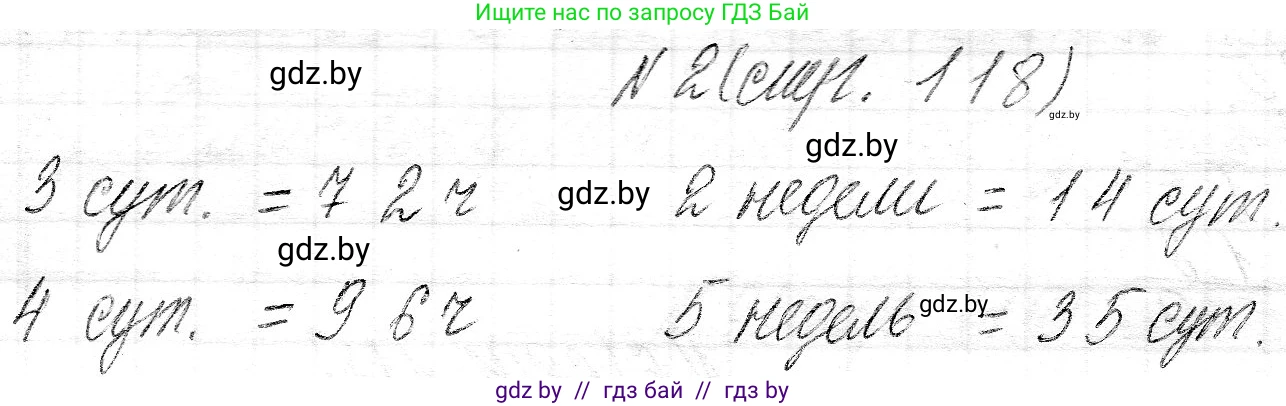 Ищите нас по запросу ГДЗ Бай
gdz.by
N 2 (стр. 118)
gdz.by
gdz.by
3 сут. = 72 ч gdz.by 2 недели = 14 сут.
gdz.by
4 сут. = 96 ч 5 недель gdz.by = 35 сут.
gdz by // гдз бай // гдз by